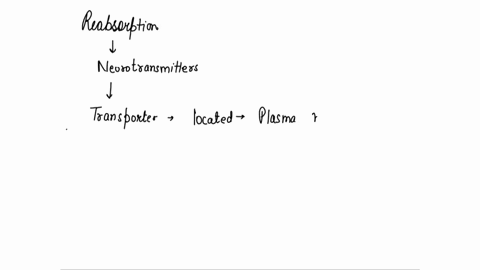 Reabsorption
↓
Neurotransmitters
↓
Transporter → located → Plasma